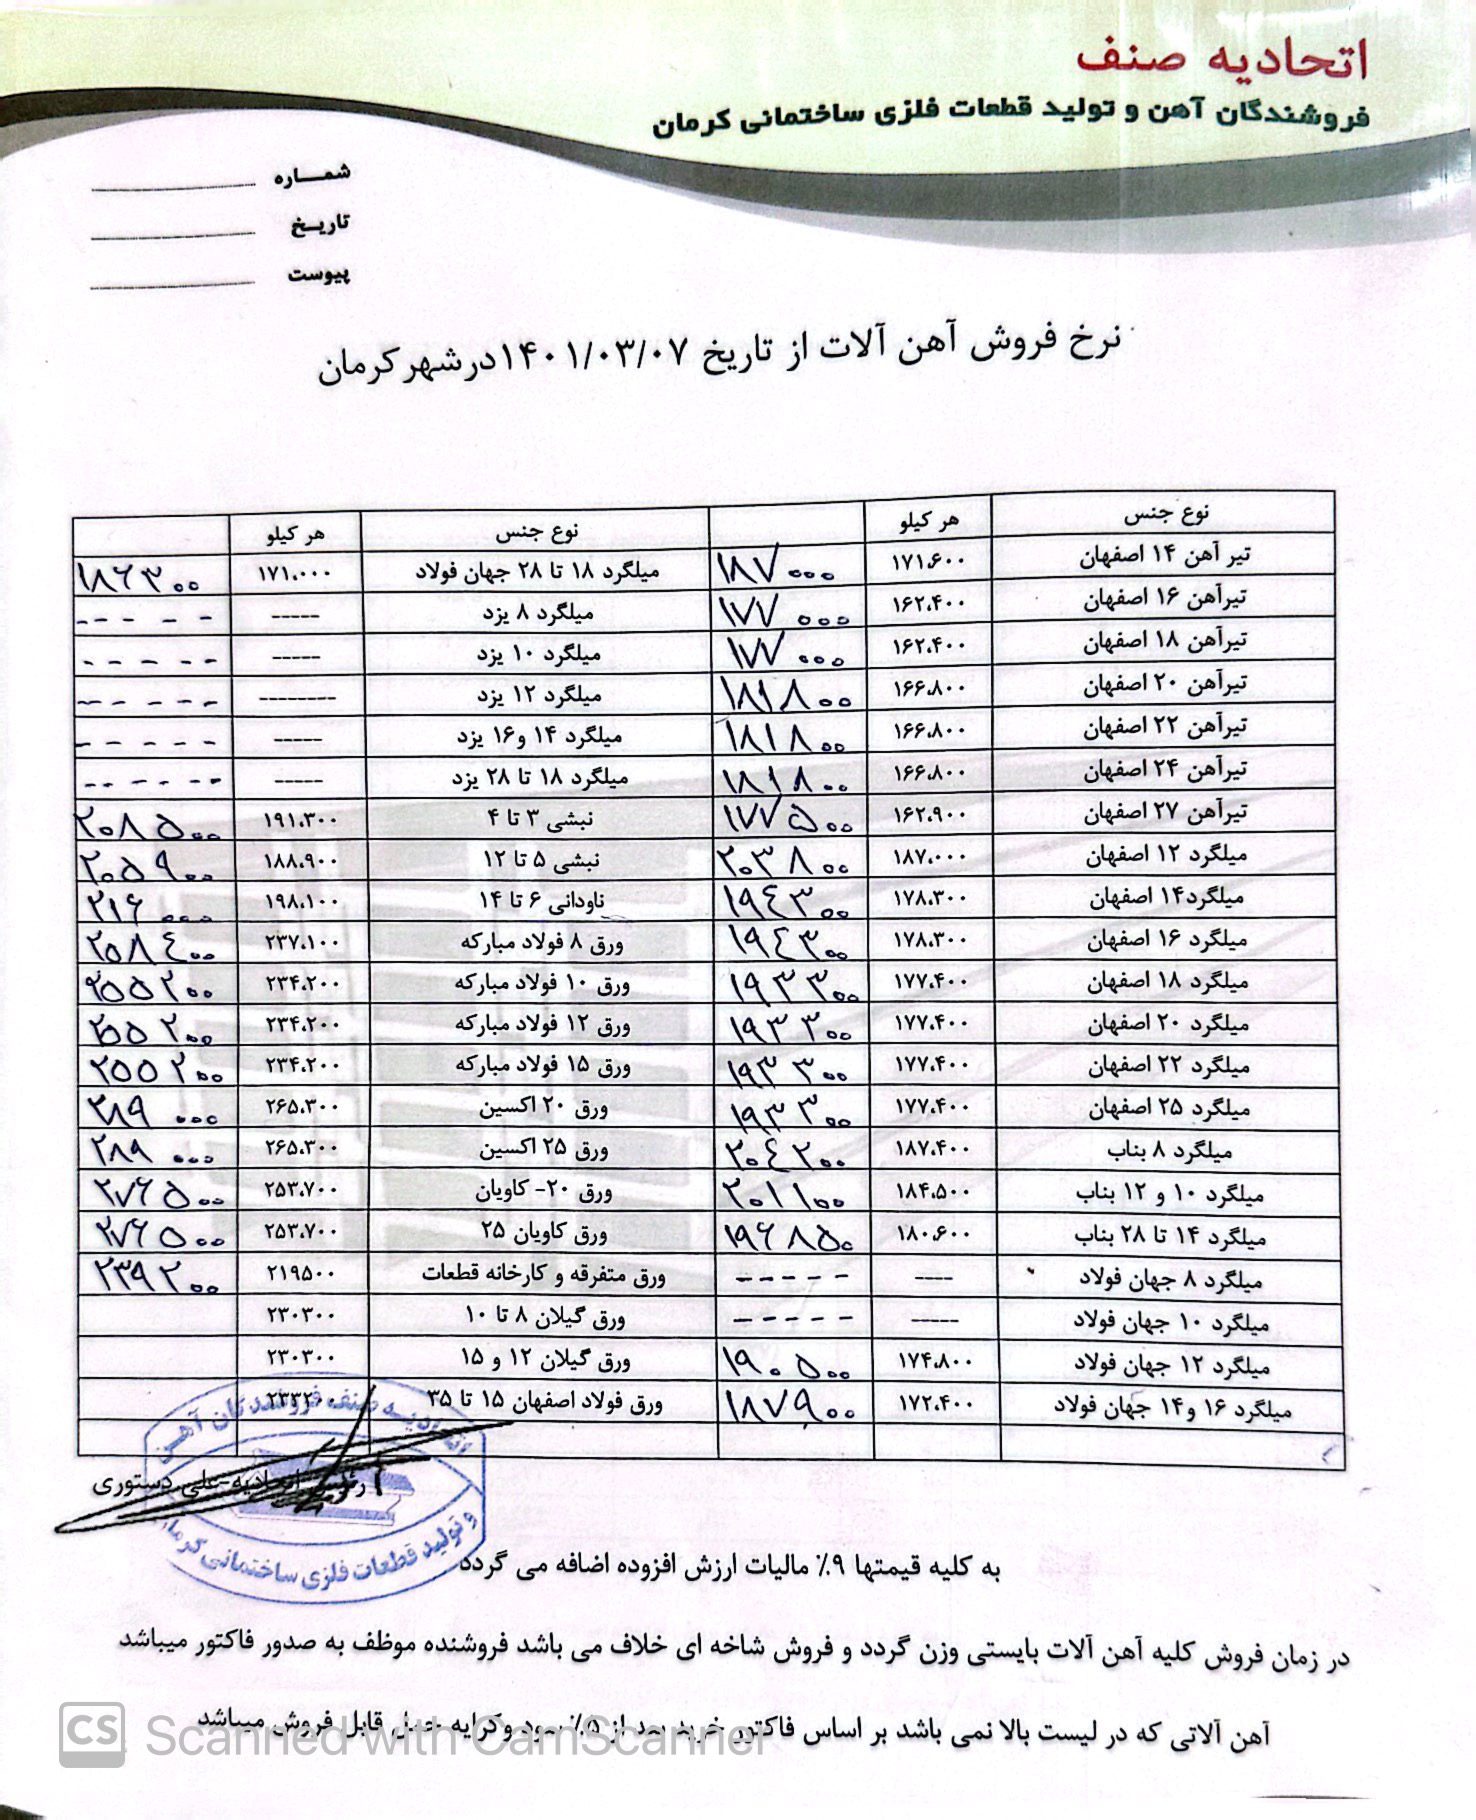 اتحادیه صنف
فروشندگان آهن و تولید قطعات فلزی ساختمانی کرمان
شمـــاره
تاریـخ
پیوست
نرخ فروش آهن آلات از تاریخ ۱۴۰۱/۰۳/۰۷درشهرکرمان
نوع جنس هر کیلو نوع جنس هر کیلو
تیر آهن ۱۴ اصفهان ۱۷۱،۶۰۰ ۱۸۷۰۰۰ میلگرد ۱۸ تا ۲۸ جهان فولاد ۱۷۱،۰۰۰ ۱۸۶۳۰۰
تیرآهن ۱۶ اصفهان ۱۶۲،۴۰۰ ۱۷۷۰۰۰ میلگرد ۸ یزد ----- -----
تیرآهن ۱۸ اصفهان ۱۶۲،۴۰۰ ۱۷۷۰۰۰ میلگرد ۱۰ یزد ----- -----
تیرآهن ۲۰ اصفهان ۱۶۶،۸۰۰ ۱۸۱۸۰۰ میلگرد ۱۲ یزد -------- -----
تیرآهن ۲۲ اصفهان ۱۶۶،۸۰۰ ۱۸۱۸۰۰ میلگرد ۱۴ و۱۶ یزد ----- -----
تیرآهن ۲۴ اصفهان ۱۶۶،۸۰۰ ۱۸۱۸۰۰ میلگرد ۱۸ تا ۲۸ یزد ----- -----
تیرآهن ۲۷ اصفهان ۱۶۲،۹۰۰ ۱۷۷۵۰۰ نبشی ۳ تا ۴ ۱۹۱،۳۰۰ ۲۰۸۵۰۰
میلگرد ۱۲ اصفهان ۱۸۷،۰۰۰ ۲۰۳۸۰۰ نبشی ۵ تا ۱۲ ۱۸۸،۹۰۰ ۲۰۵۹۰۰
میلگرد۱۴ اصفهان ۱۷۸،۳۰۰ ۱۹۴۳۰۰ ناودانی ۶ تا ۱۴ ۱۹۸،۱۰۰ ۲۱۶۰۰۰
میلگرد ۱۶ اصفهان ۱۷۸،۳۰۰ ۱۹۴۳۰۰ ورق ۸ فولاد مبارکه ۲۳۷،۱۰۰ ۲۵۸۴۰۰
میلگرد ۱۸ اصفهان ۱۷۷،۴۰۰ ۱۹۳۳۰۰ ورق ۱۰ فولاد مبارکه ۲۳۴،۲۰۰ ۲۵۵۲۰۰
میلگرد ۲۰ اصفهان ۱۷۷،۴۰۰ ۱۹۳۳۰۰ ورق ۱۲ فولاد مبارکه ۲۳۴،۲۰۰ ۲۵۵۲۰۰
میلگرد ۲۲ اصفهان ۱۷۷،۴۰۰ ۱۹۳۳۰۰ ورق ۱۵ فولاد مبارکه ۲۳۴،۲۰۰ ۲۵۵۲۰۰
میلگرد ۲۵ اصفهان ۱۷۷،۴۰۰ ۱۹۳۳۰۰ ورق ۲۰ اکسین ۲۶۵،۳۰۰ ۲۸۹۰۰۰
میلگرد ۸ بناب ۱۸۷،۴۰۰ ۲۰۴۲۰۰ ورق ۲۵ اکسین ۲۶۵،۳۰۰ ۲۸۹۰۰۰
میلگرد ۱۰ و ۱۲ بناب ۱۸۴،۵۰۰ ۲۰۱۱۰۰ ورق ۲۰- کاویان ۲۵۳،۷۰۰ ۲۷۶۵۰۰
میلگرد ۱۴ تا ۲۸ بناب ۱۸۰،۶۰۰ ۱۹۶۸۵۰ ورق کاویان ۲۵ ۲۵۳،۷۰۰ ۲۷۶۵۰۰
میلگرد ۸ جهان فولاد ---- ----- ورق متفرقه و کارخانه قطعات ۲۱۹۵۰۰ ۲۳۹۲۰۰
میلگرد ۱۰ جهان فولاد ----- ----- ورق گیلان ۸ تا ۱۰ ۲۳۰۳۰۰
میلگرد ۱۲ جهان فولاد ۱۷۴،۸۰۰ ۱۹۰۵۰۰ ورق گیلان ۱۲ و ۱۵ ۲۳۰۳۰۰
میلگرد ۱۶ و۱۴ جهان فولاد ۱۷۲،۴۰۰ ۱۸۷۹۰۰ ورق فولاد اصفهان ۱۵ تا ۳۵ ۲۳۳۲۰۰
اتحادیـه صنف فروشندگان آهـن
رئیس اتحادیه-علی دستوری
و تولید قطعات فلزی ساختمانی کرمان
به کلیه قیمتها ۹٪ مالیات ارزش افزوده اضافه می گردد
در زمان فروش کلیه آهن آلات بایستی وزن گردد و فروش شاخه ای خلاف می باشد فروشنده موظف به صدور فاکتور میباشد
آهن آلاتی که در لیست بالا نمی باشد بر اساس فاکتور خرید بعد از ۵٪ سود وکرایه حمل قابل فروش میباشد
CS Scanned with CamScanner